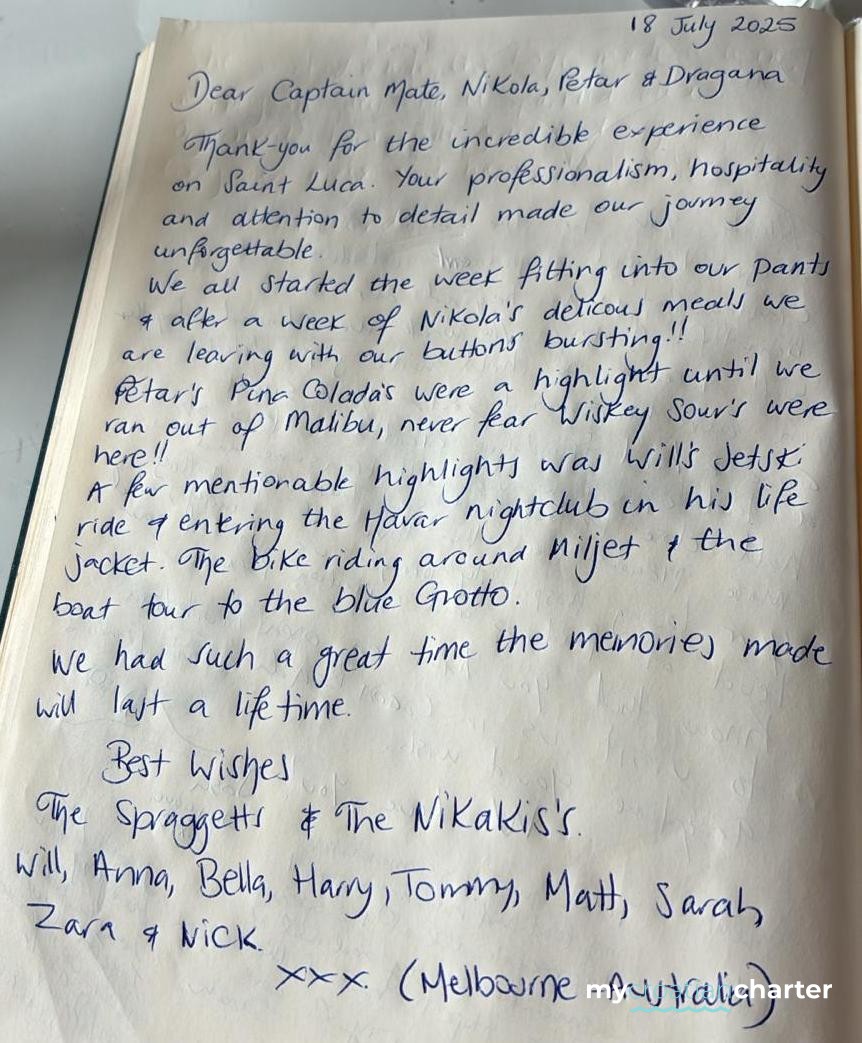 18 July 2025
Dear Captain Mate, Nikola, Petar & Dragana
Thank-you for the incredible experience
on Saint Luca. Your professionalism, hospitality
and attention to detail made our journey
unforgettable.
We all started the week fitting into our pants
& after a week of Nikola's delicous meals we
are leaving with our buttons bursting!!
Petar's Pina Colada's were a highlight until we
ran out of Malibu, never fear Wiskey Sour's were
here!!
A few mentionable highlights was Will's Jetski
ride & entering the Havar nightclub in his life
jacket. The bike riding around Miljet & the
boat tour to the blue Grotto.
We had such a great time the memories made
will last a life time.
Best Wishes
The Spraggetts & The Nikakis's.
Will, Anna, Bella, Harry, Tommy, Matt, Sarah,
Zara & Nick.
xxx. (Melbourne Australia)
mycroatiancharter